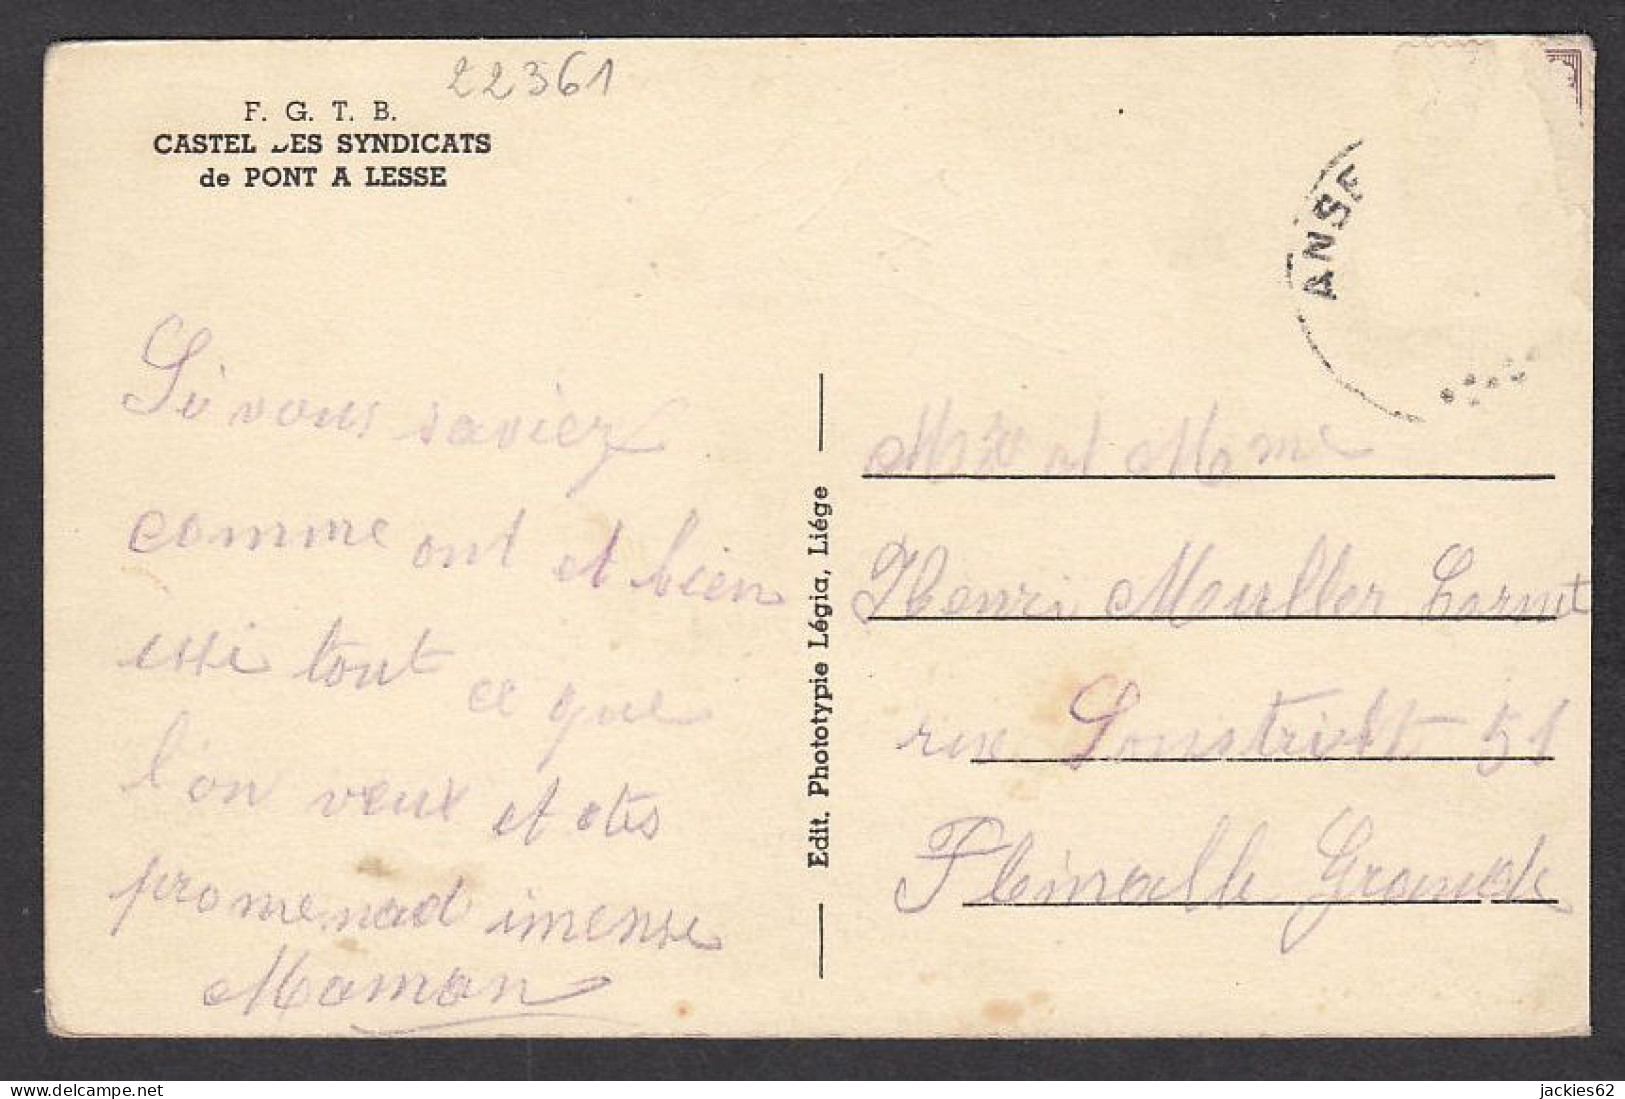 22361
F. G. T. B.
CASTEL DES SYNDICATS
de PONT A LESSE
ANSE
Si vous saviez
comme ont et bien
issi tout ce que
l'on veux et
promenad imense
Maman
Edit. Phototypie Légia, Liége
Mr et Mme
Henri Muller
rue 51
Flémalle Grande
delcampe.net
jackies62